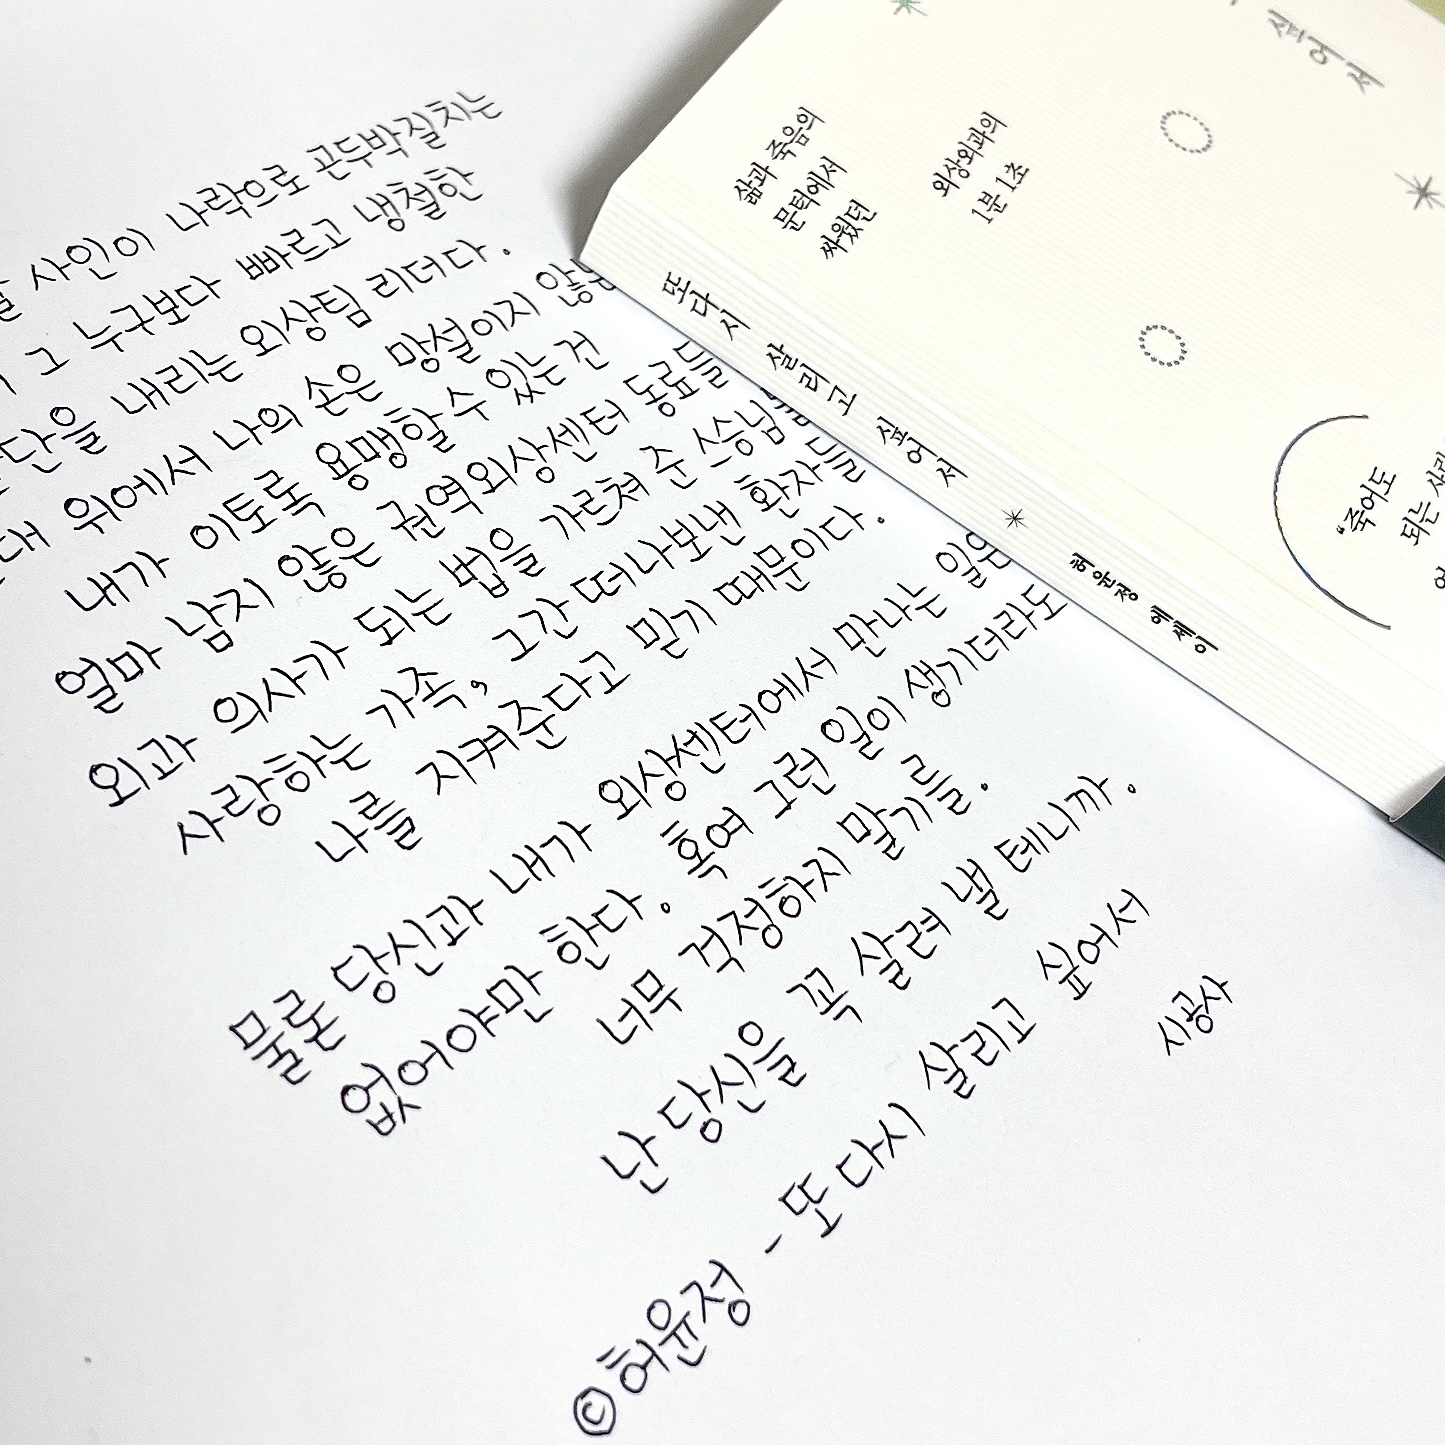 사인이 나락으로 곤두박질치는
그 누구보다 빠르고 냉철한
단을 내리는 외상팀 리더다.
위에서 나의 손은 망설이지
내가 이토록 용맹할 수 있는 건
얼마 남지 않은 권역외상센터 동료들
외과 의사가 되는 법을 가르쳐 준
사랑하는 가족, 그간 떠나보낸 환자들
나를 지켜준다고 믿기 때문이다.
물론 당신과 내가 외상센터에서 만나는 일은
없어야만 한다. 혹여 그런 일이 생기더라도
너무 걱정하지 말기를.
난 당신을 꼭 살려 낼 테니까.
©허윤정 - 또 다시 살리고 싶어서
시공사
싶어서
삶과 죽음의
문턱에서
싸웠던
외상외과의
1분 1초
“죽어도
되는
또다시 살리고 싶어서 허윤정 에세이